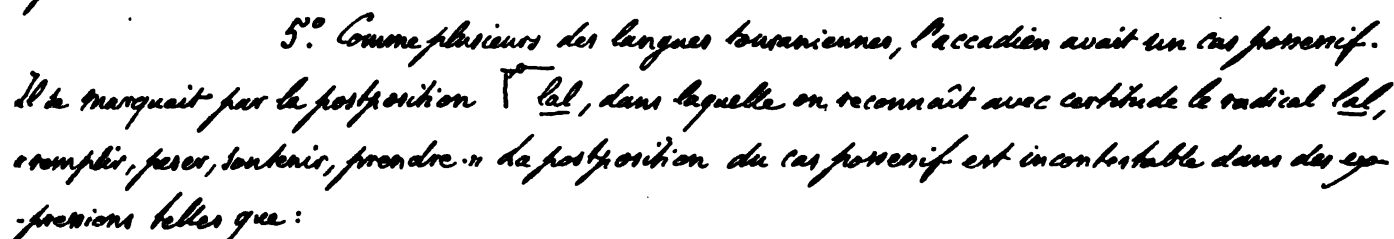 5º. Comme plusieurs des langues touraniennes, l'accadien avait un cas possessif.
Il se marquait par la postposition 𒇲 lal, dans laquelle on reconnaît avec certitude le radical lal,
« remplir, peser, soutenir, prendre. » La postposition du cas possessif est incontestable dans des ex-
-pressions telles que :